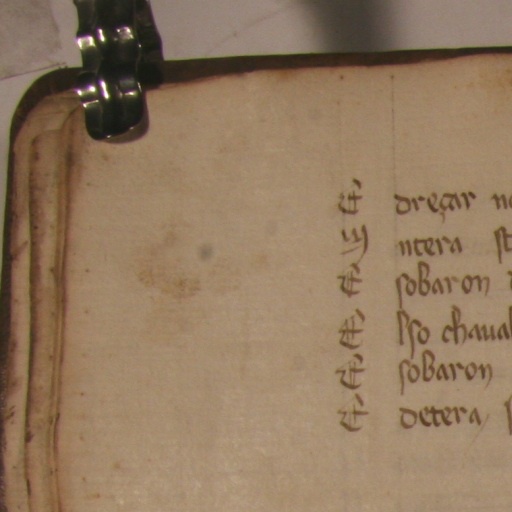 E dreçar
M ntera
E sobaron
E lso chaual
E sobaron
E detera